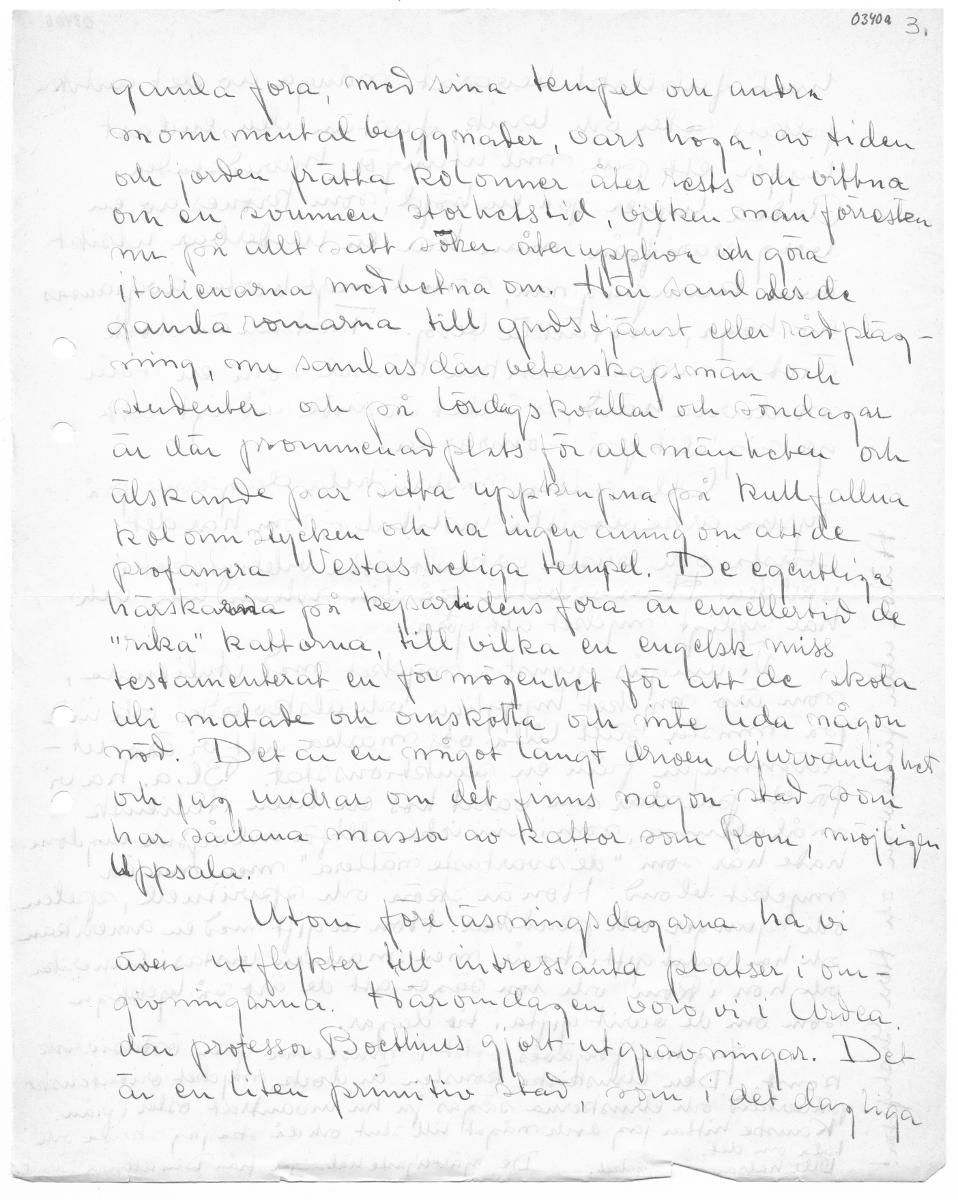 0340a 3.
gamla fora, med sina tempel och andra
monumentalbyggnader, vars höga, av tiden
och jorden frätta kolonner åter rests och vittna
om en svunnen storhetstid, vilken man förresten
nu på allt sätt söker återuppliva och göra
italienarna medvetna om. Här samlades de
gamla romarna till gudstjänst eller rådpläg-
ning, nu samlas där vetenskapsmän och
studenter och på lördagskvällar och söndagar
är där prommenadplats för allmänheten och
älskande par sitta uppkrupna på kullfallna
kolonnstycken och ha ingen aning om att de
profanera Vestas heliga tempel. De egentliga
härskarna på kejsartidens fora är emellertid de
"rika" katterna, till vilka en engelsk miss
testamenterat en förmögenhet för att de skola
bli matade och omskötta och inte lida någon
nöd. Det är en något långt driven djurvänlighet
och jag undrar om det finns någon stad som
har sådana massor av kattor som Rom, möjligen
Uppsala.
Utom föreläsningsdagarna ha vi
även utflykter till intressanta platser i om-
givningarna. Häromdagen voro vi i Ardea.
där professor Boethius gjort utgrävningar. Det
är en liten primitiv stad, som i det dagliga